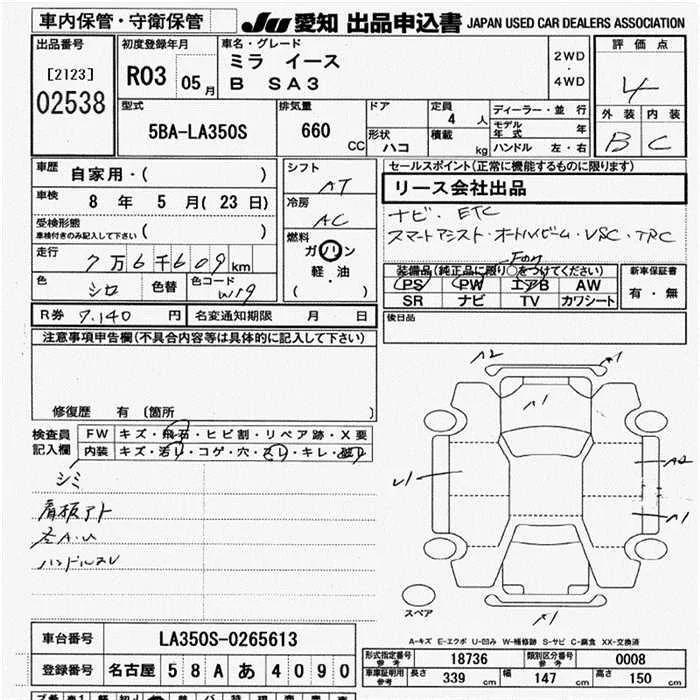 車内保管・守衛保管
JU 愛知 出品申込書 JAPAN USED CAR DEALERS ASSOCIATION
出品番号
[2123]
02538
初度登録年月
R03 05月
車名・グレード
ミラ イース
B SA3
2WD
・
4WD
評価点
4
外装 内装
B C
型式
5BA-LA350S
排気量
660 CC
ドア
形状
ハコ
定員
4 人
積載 kg
ディーラー・並行
モデル年式 年
ハンドル 左・右
車歴
自家用・( )
車検
8 年 5 月 ( 23 日)
受検形態
車検付きのみ記入して下さい ( )
走行
7万6千609km
色 シロ 色替 色コード W19
シフト
AT
冷房
AC
燃料
ガソリン
軽・油
( )
セールスポイント(正常に機能するものに限ります)
リース会社出品
ナビ・ETC
スマートアシスト・オートハイビーム・VSC・TRC
装備品(純正品に限り○をつけてください)
PS PW エアB AW
SR ナビ TV カワシート
新車保証書
有・無
R券 7,140 円 名変通知期限 月 日
後日品
注意事項申告欄(不具合内容等は具体的に記入して下さい)
修復歴 有 〔箇所 〕
検査員記入欄
FW キズ・飛石・ヒビ割・リペア跡・X要
内装 キズ・汚レ・コゲ・穴・スレ・キレ・破レ
シミ
看板アト
ハンドルスレ
A2
A1
A1
A2
A1
X1
スペア
A-キズ E-エクボ U-凹み W-補修跡 S-サビ C-腐食 XX-交換済
車台番号 LA350S-0265613
登録番号 名古屋 58A あ 4090
形式指定番号 参考 18736 類別区分番号 参考 0008
車庫証明用 参考 長さ 339 cm 幅 147 cm 高さ 150 cm